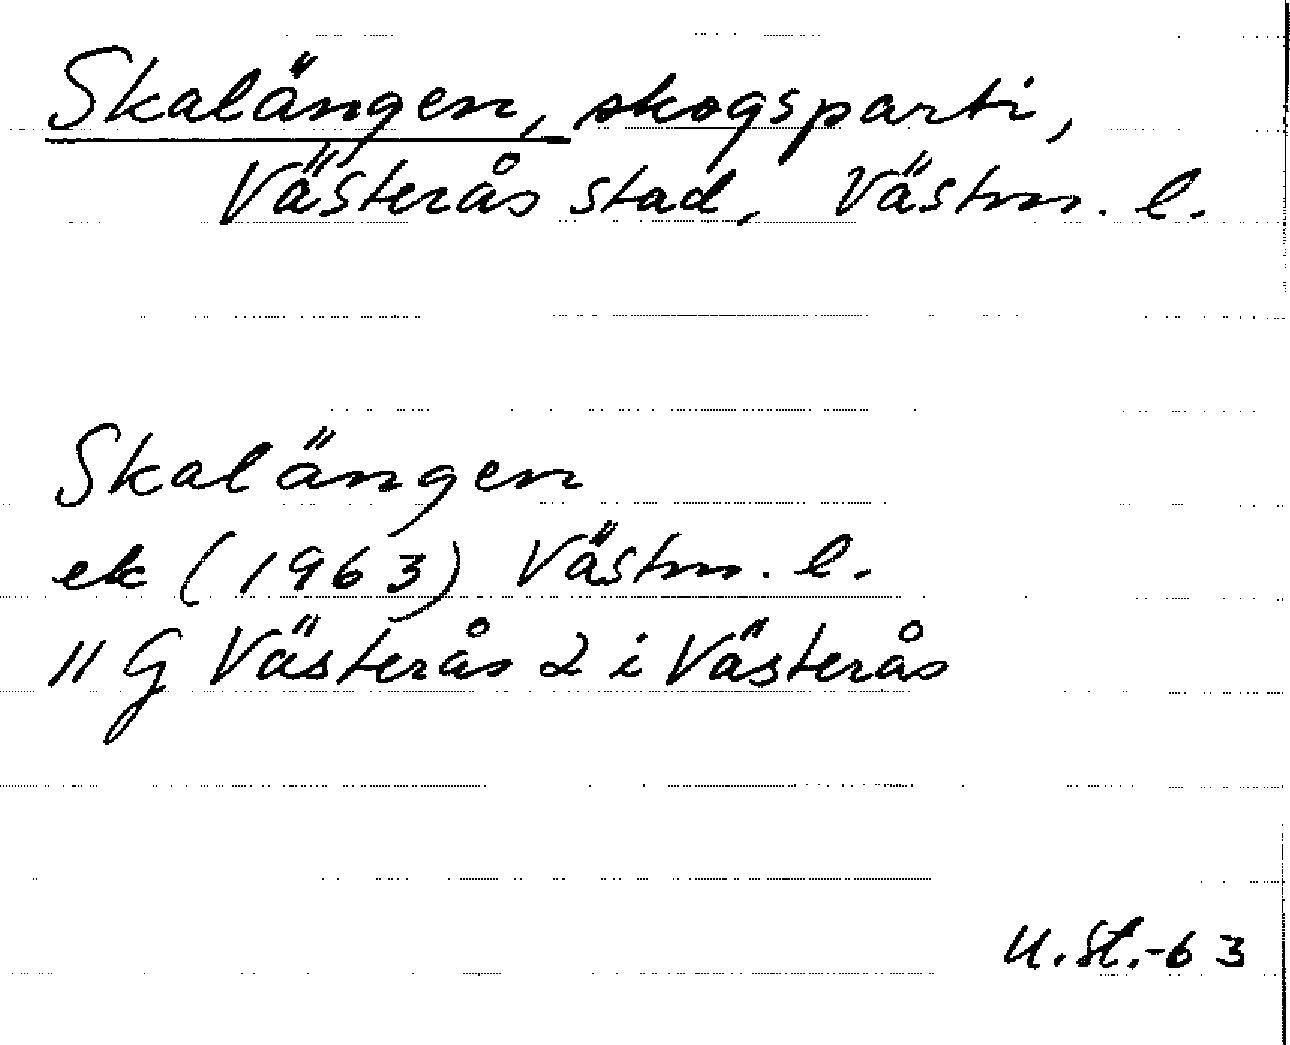 Skalängen, skogsparti,
Västerås stad, Västm. l.
Skalängen
ek (1963) Västm. l.
11 G Västerås 2 i Västerås
U.St.-63